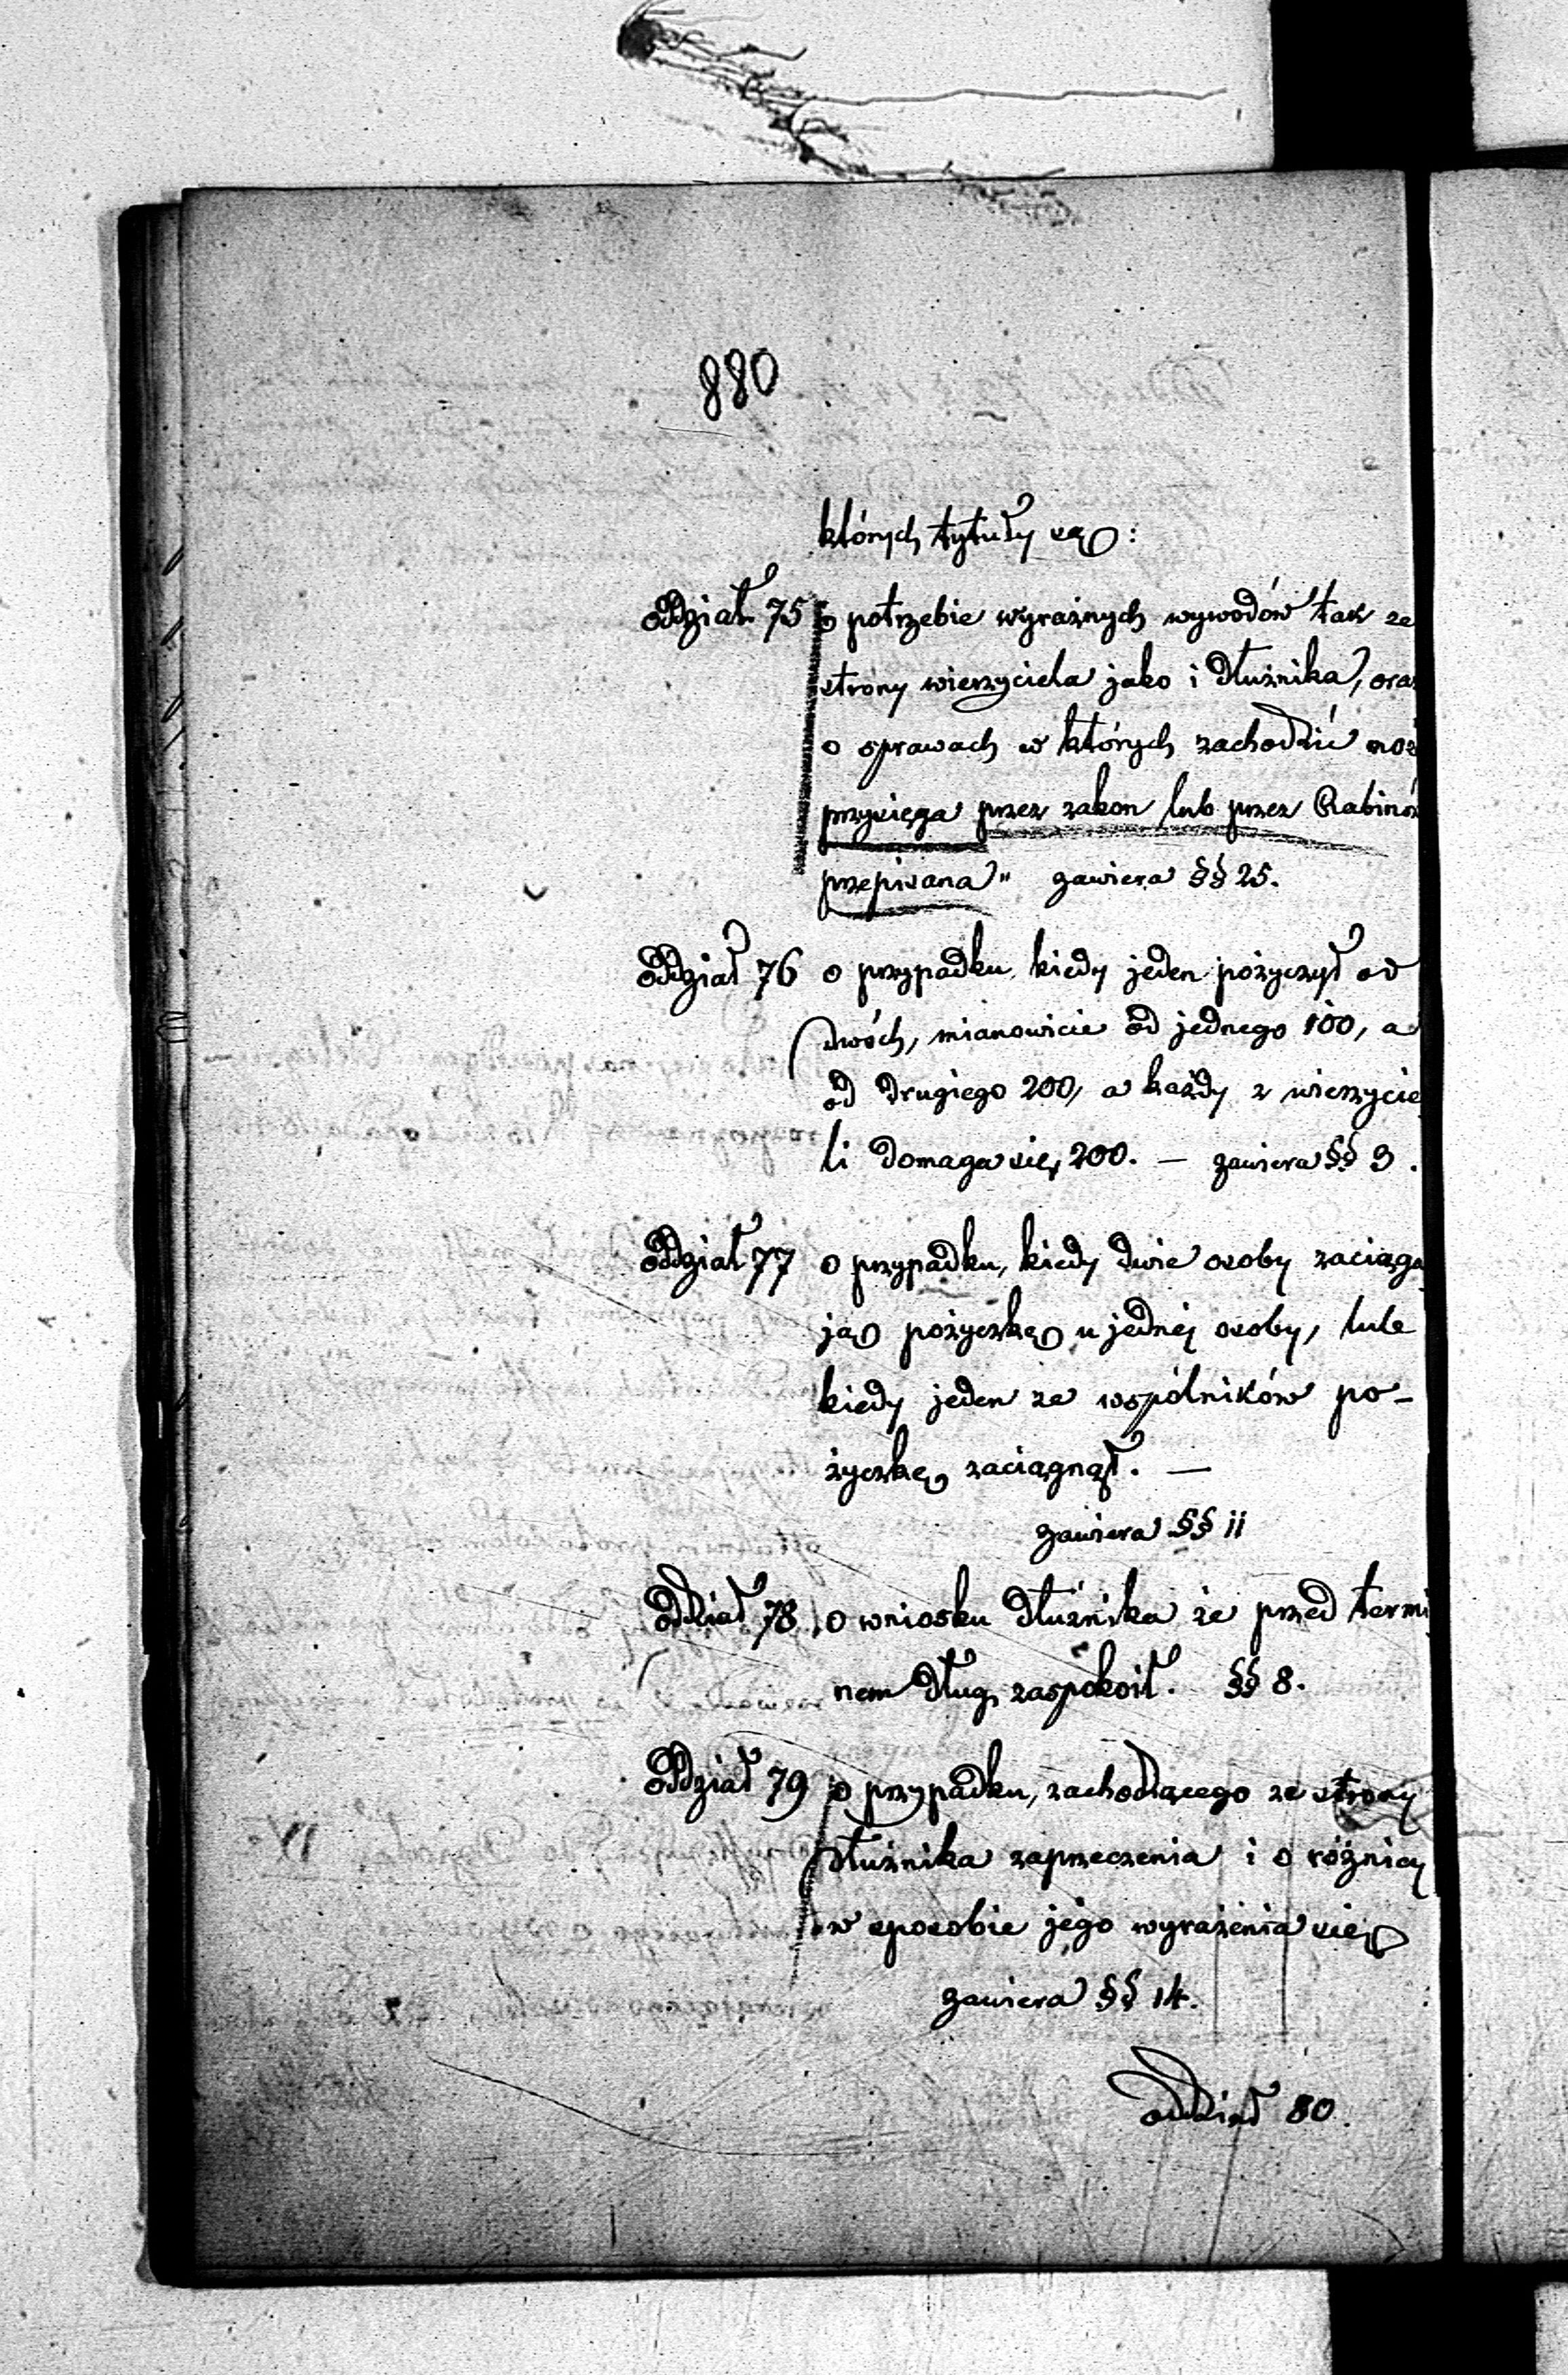 880
których tytuły są:
Oddział 75 o potrzebie wyraźnych wywodów tak ze
strony wierzyciela jako i dłużnika, oraz
o sprawach w których zachodzić moż
przysięga przez zakon lub przez Rabinów
przepisana" zawiera §§ 25.
Oddział 76 o przypadku, kiedy jeden pożyczył od
dwóch, mianowicie od jednego 100, a
od drugiego 200, a każdy z wierzycie
li domaga się, 200. — zawiera §§ 3.
Oddział 77 o przypadku, kiedy dwie osoby zaciąga
ją pożyczkę u jednéj osoby, lub
kiedy jeden ze wspólników po-
życzkę zaciągnął. —
zawiera §§ 11
Oddział 78 o wniosku dłużnika że przed termi
nem dług zaspokoił. §§ 8.
Oddział 79 o przypadku, zachodzącego ze strony
dłużnika zaprzeczenia i o różnicy
w sposobie jego wyrażenia się
zawiera §§ 14.
oddział 80.